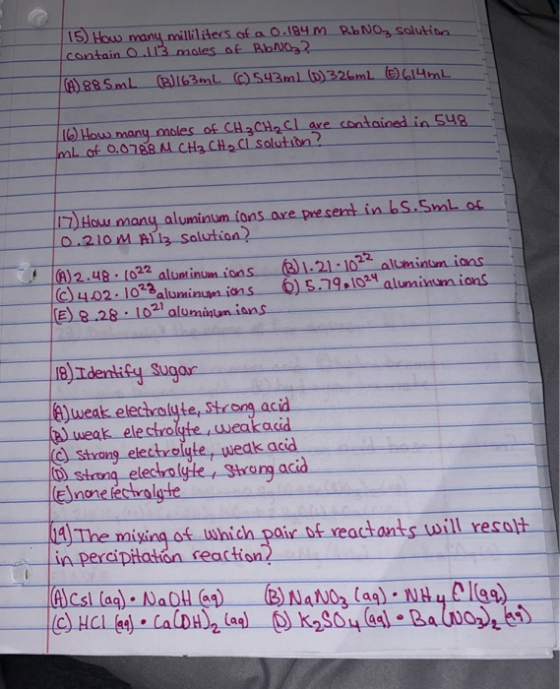 15) How many milliliters of a 0.184M RbNO₃ solution
contain 0.113 moles of RbNO₃?
(A) 885mL (B) 163mL (C) 543mL (D) 326mL (E) 614mL
16) How many moles of CH₃CH₂Cl are contained in 548
mL of 0.0788 M CH₃CH₂Cl solution?
17) How many aluminum ions are present in 65.5mL of
0.210 M AlI₃ solution?
(A) 2.48 · 10²² aluminum ions (B) 1.21 · 10²² aluminum ions
(C) 4.02 · 10²³ aluminum ions D) 5.79 · 10²⁴ aluminum ions
(E) 8.28 · 10²¹ aluminum ions
18) Identify Sugar
(A) weak electrolyte, Strong acid
(B) weak electrolyte, weak acid
(C) strong electrolyte, weak acid
(D) strong electrolyte, strong acid
(E) nonelectrolyte
19) The mixing of which pair of reactants will result
in percipitation reaction?
(A) CsI (aq) · NaOH (aq) (B) NaNO₃ (aq) · NH₄Cl (aq)
(C) HCl (aq) · Ca(OH)₂ (aq) (D) K₂SO₄ (aq) · Ba(NO₃)₂ (aq)